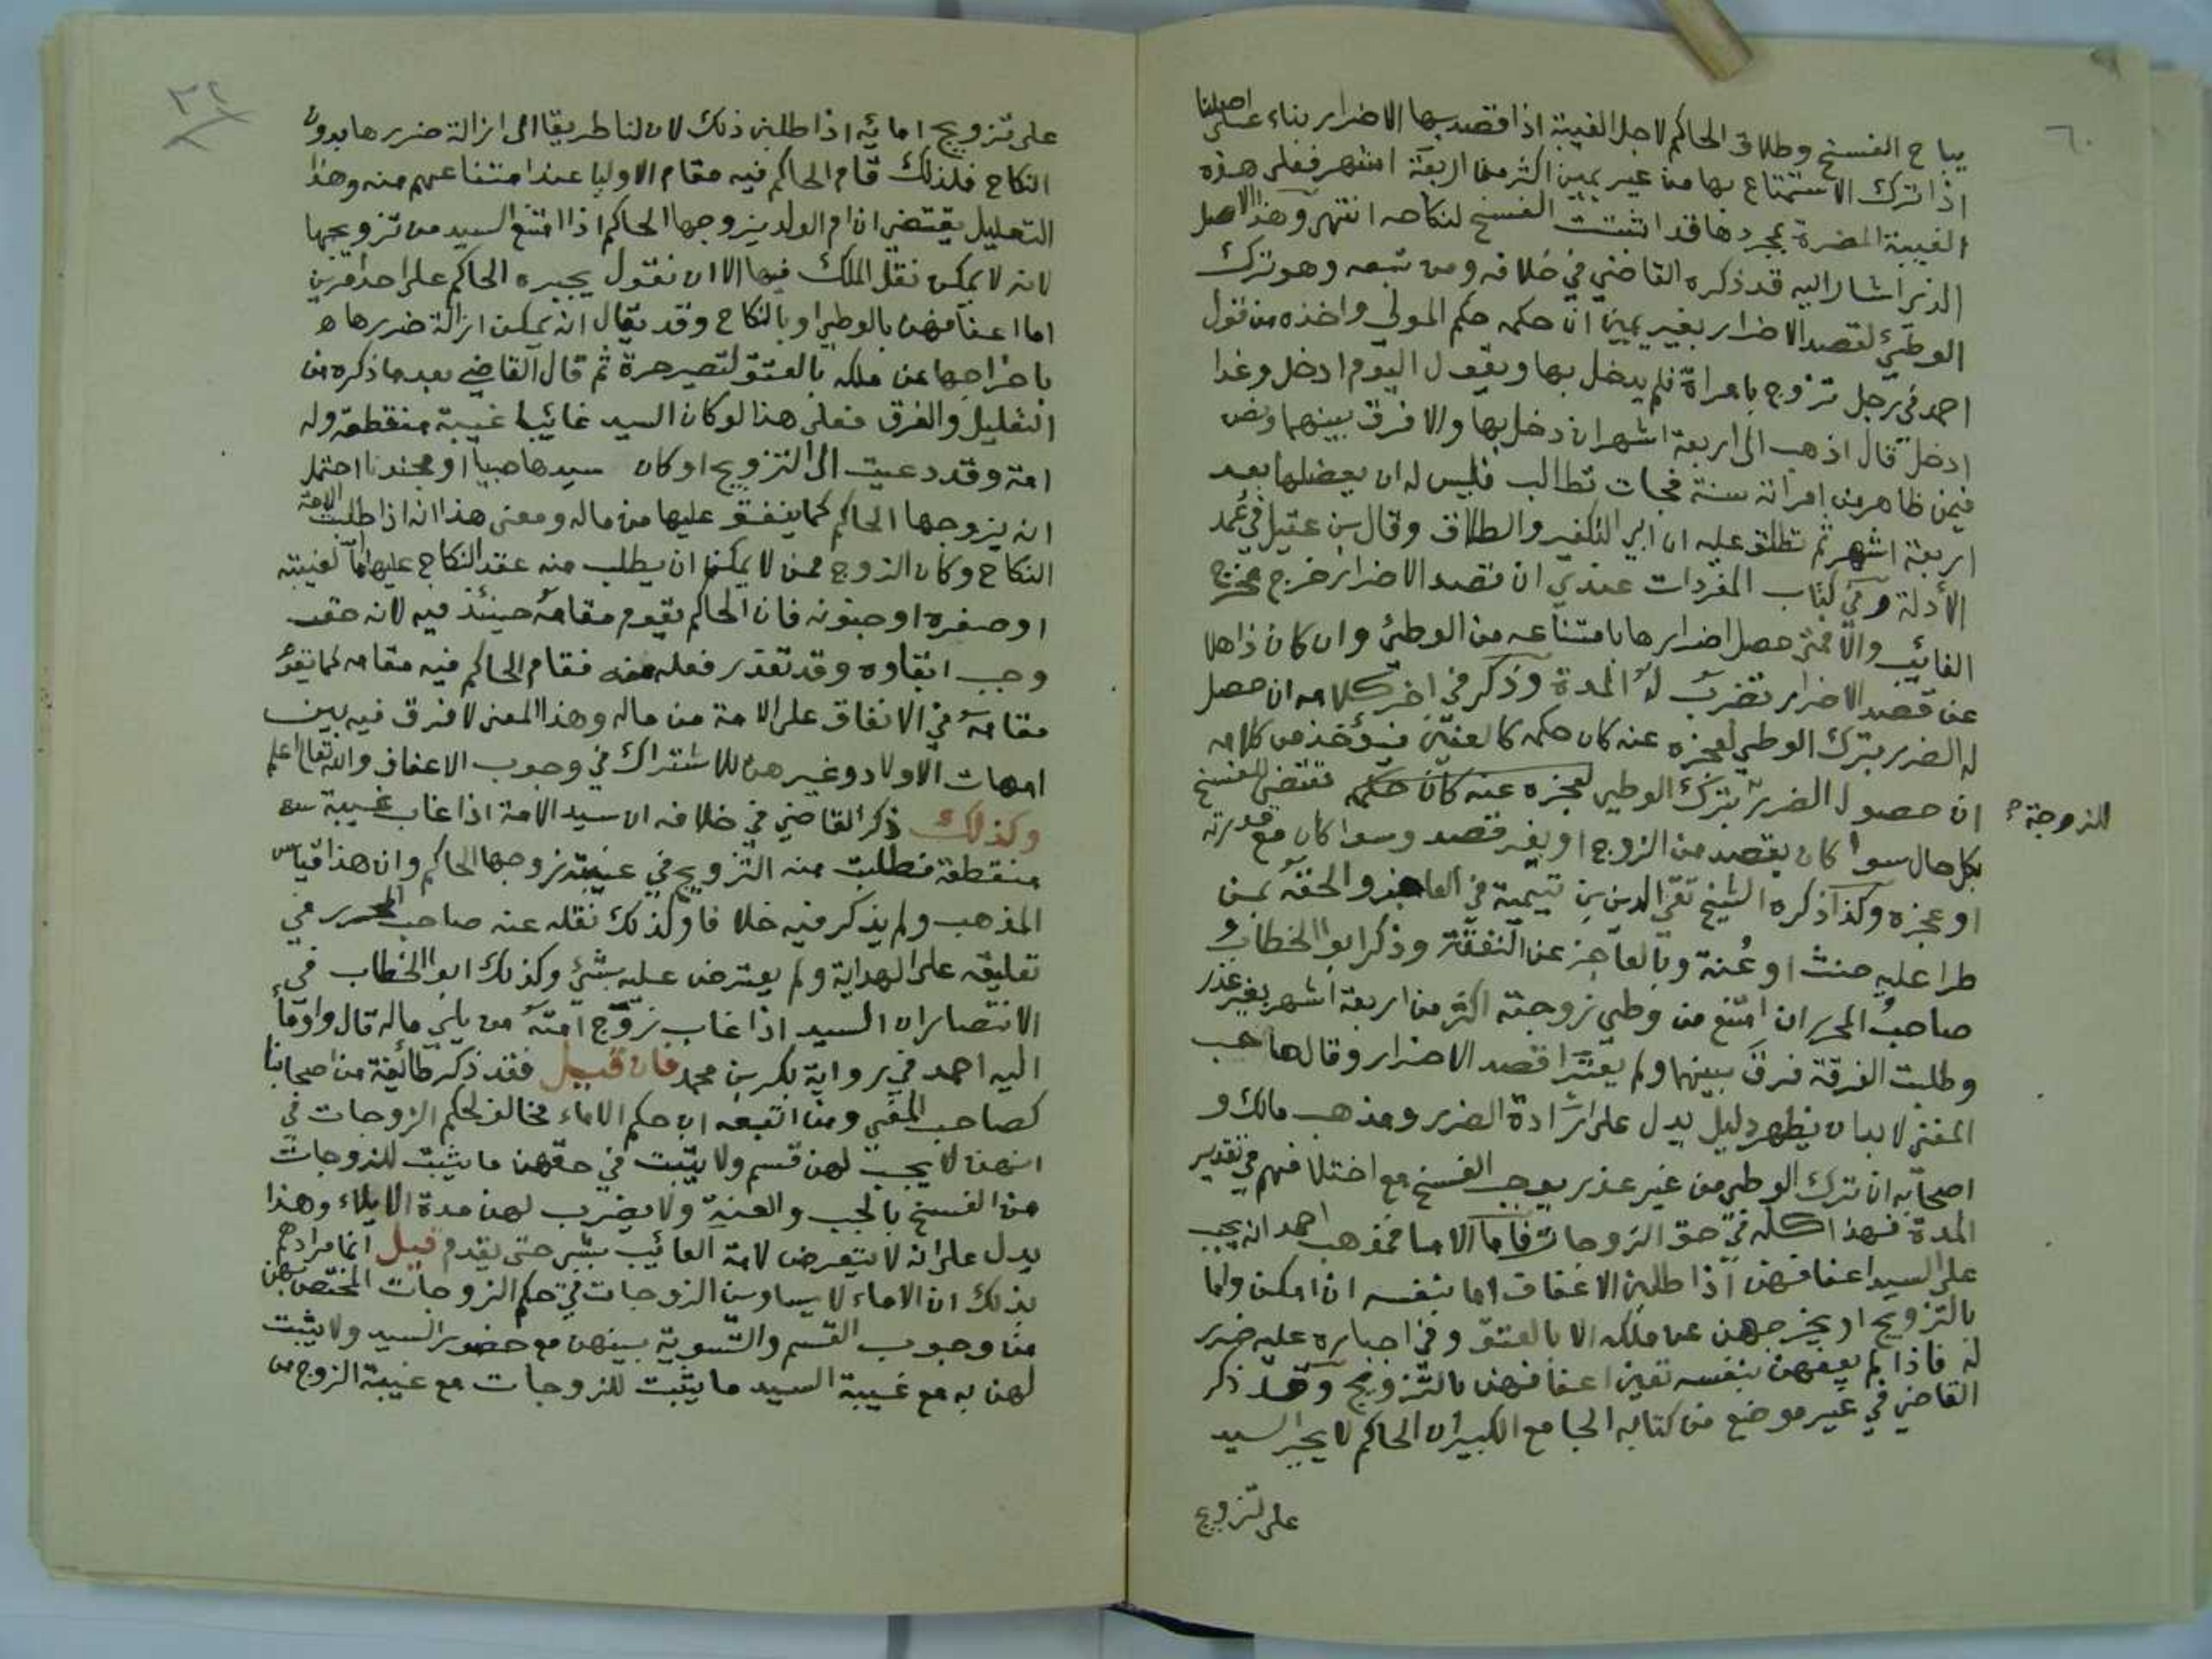 ٦٠
يباح الفسخ وطلاق الحاكم لاجل الغيبة اذا قصد بها الاضرار بناء على اصلنا
اذا ترك الاستمتاع بها من غير يمين اكثر من اربعة اشهر فعلى هذه
الغيبة المضرة بمجردها قد اثبتت الفسخ لنكاحه انتهى وهذا الاصل
الذي اشار اليه قد ذكره القاضي في خلافه ومن تبعه وهو ترك
الوطئ لقصد الاضرار بغير يمين ان حكمه حكم المولي واخذه من قول
احمد في رجل تزوج بامراة فلم يدخل بها ويقول اليوم ادخل وغدا
ادخل قال اذهب الى اربعة اشهر ان دخل بها والا فرق بينهما ونص
فيمن ظاهر من امراته سنة فجات تطالب فليس له ان يعضلها بعد
اربعة اشهر ثم تطلق عليه ان ابى التكفير والطلاق وقال بن عقيل في عمد
الأدلة وفي كتاب المفردات عندي ان قصد الاضرار خرج مخرج
الغائب والا فمتى حصل اضرارها بامتناعه من الوطئ وان كان ذاهلا
عن قصد الاضرار تضرب له المدة وذكر في اخر كلامه ان حصل
له الضرر بترك الوطي لعجزه عنه كان حكمه كالعنين فيؤخذ من كلامه
ان حصول الضرر بترك الوطي لعجزه عنه كان حكمه مقتضى للفسخ
للزوجة
بكل حال سوا كان بقصد من الزوج او بغير قصد وسوا كان مع قدرته
او عجزه وكذا ذكره الشيخ تقي الدين بن تيمية في العاجز والحقه بمن
طرا عليه جنث او عُنة وبالعاجز عن النفقة وذكر ابو الخطاب و
صاحب المحرر ان امتنع من وطي زوجته اكثر من اربعة اشهر بغير عذر
وطلبت الفرقة فرق بينهما ولم يعتبرا قصد الاضرار وقال صاحب
المغني لا بد ان يظهر دليل يدل على ارادة الضرر ومذهب مالك و
اصحابه ان ترك الوطي من غير عذر يوجب الفسخ مع اختلافهم في تقدير
المدة فهذا كله في حق الزوجات فاما الاما فمذهب احمد انه يجب
على السيد اعفافهن اذا طلبن الاعفاف اما بنفسه ان امكن واما
بالتزويج او يخرجهن عن ملكه الا بالعتق وفي اجباره عليه ضرر
له فاذا لم يعفهن بنفسه تعين اعفافهن بالتزويج وقد ذكر
القاضي في غير موضع من كتابه الجامع الكبير ان الحاكم لا يجبر السيد
على تزويج
٣٢
على تزويج امائه اذا طلبن ذلك لان لنا طريقا الى ازالة ضررها بدون
النكاح فلذلك قام الحاكم فيه مقام الاوليا عند امتناعهم منه وهذا
التعليل يقتضي ان ام الولد يزوجها الحاكم اذا امتنع السيد من تزويجها
لانه لا يمكن نقل الملك فيها الا ان نقول يجبره الحاكم على احد امرين
اما اعفافهن بالوطي او بالنكاح وقد يقال انه يمكن ازالة ضررها ه
باخراجها عن ملكه بالعتق لتصير حرة ثم قال القاضي بعد ما ذكره من
التعليل والفرق فعلى هذا لو كان السيد غائبا غيبة منقطعة وله
امة وقد دعيت الى التزويج او كان سيدها صبيا او مجنونا احتمل
انه يزوجها الحاكم كما ينفق عليها من ماله ومعنى هذا انه اذا طلبت الامة
النكاح وكان الزوج ممن لا يمكن ان يطلب منه عقد النكاح عليها اما لغيبته
او صغره او جنونه فان الحاكم يقوم مقامه حينئذ فيه لانه حق
وجب ايفاوه وقد تعذر فعله منه فقام الحاكم فيه مقامه كما يقوم
مقامه في الانفاق على الامة من ماله وهذا المعنى لا فرق فيه بين
امهات الاولاد وغيرهن للاشتراك في وجوب الاعفاف والله تعالى اعلم
وكذلك ذكر القاضي في خلافه ان سيد الامة اذا غاب غيبة
منقطعة فطلبت منه التزويج في غيبته زوجها الحاكم وان هذا قياس
المذهب ولم يذكر فيه خلافا وكذلك نقله عنه صاحب المحرر في
تعليقه على الهداية ولم يعترض عليه بشئ وكذلك ابو الخطاب في
الانتصار ان السيد اذا غاب زوّج امته من يلي ماله قال واومأ
اليه احمد في رواية بكر بن محمد فان قيل فقد ذكر طائفة من اصحابنا
كصاحب المغني ومن اتبعه ان حكم الاماء مخالف لحكم الزوجات في
انهن لا يجب لهن قسم ولا يثبت في حقهن ما يثبت للزوجات
من الفسخ بالجب والعنة ولا يضرب لهن مدة الايلاء وهذا
يدل على انه لا يتعرض لامة الغائب بشي حتى يقدم قيل انما مرادهم
بذلك ان الاماء لا يساوين الزوجات في حكم الزوجات المختص بهن
من وجوب القسم والتسوية بينهن مع حضور السيد ولا يثبت
لهن به مع غيبة السيد ما يثبت للزوجات مع غيبة الزوج من